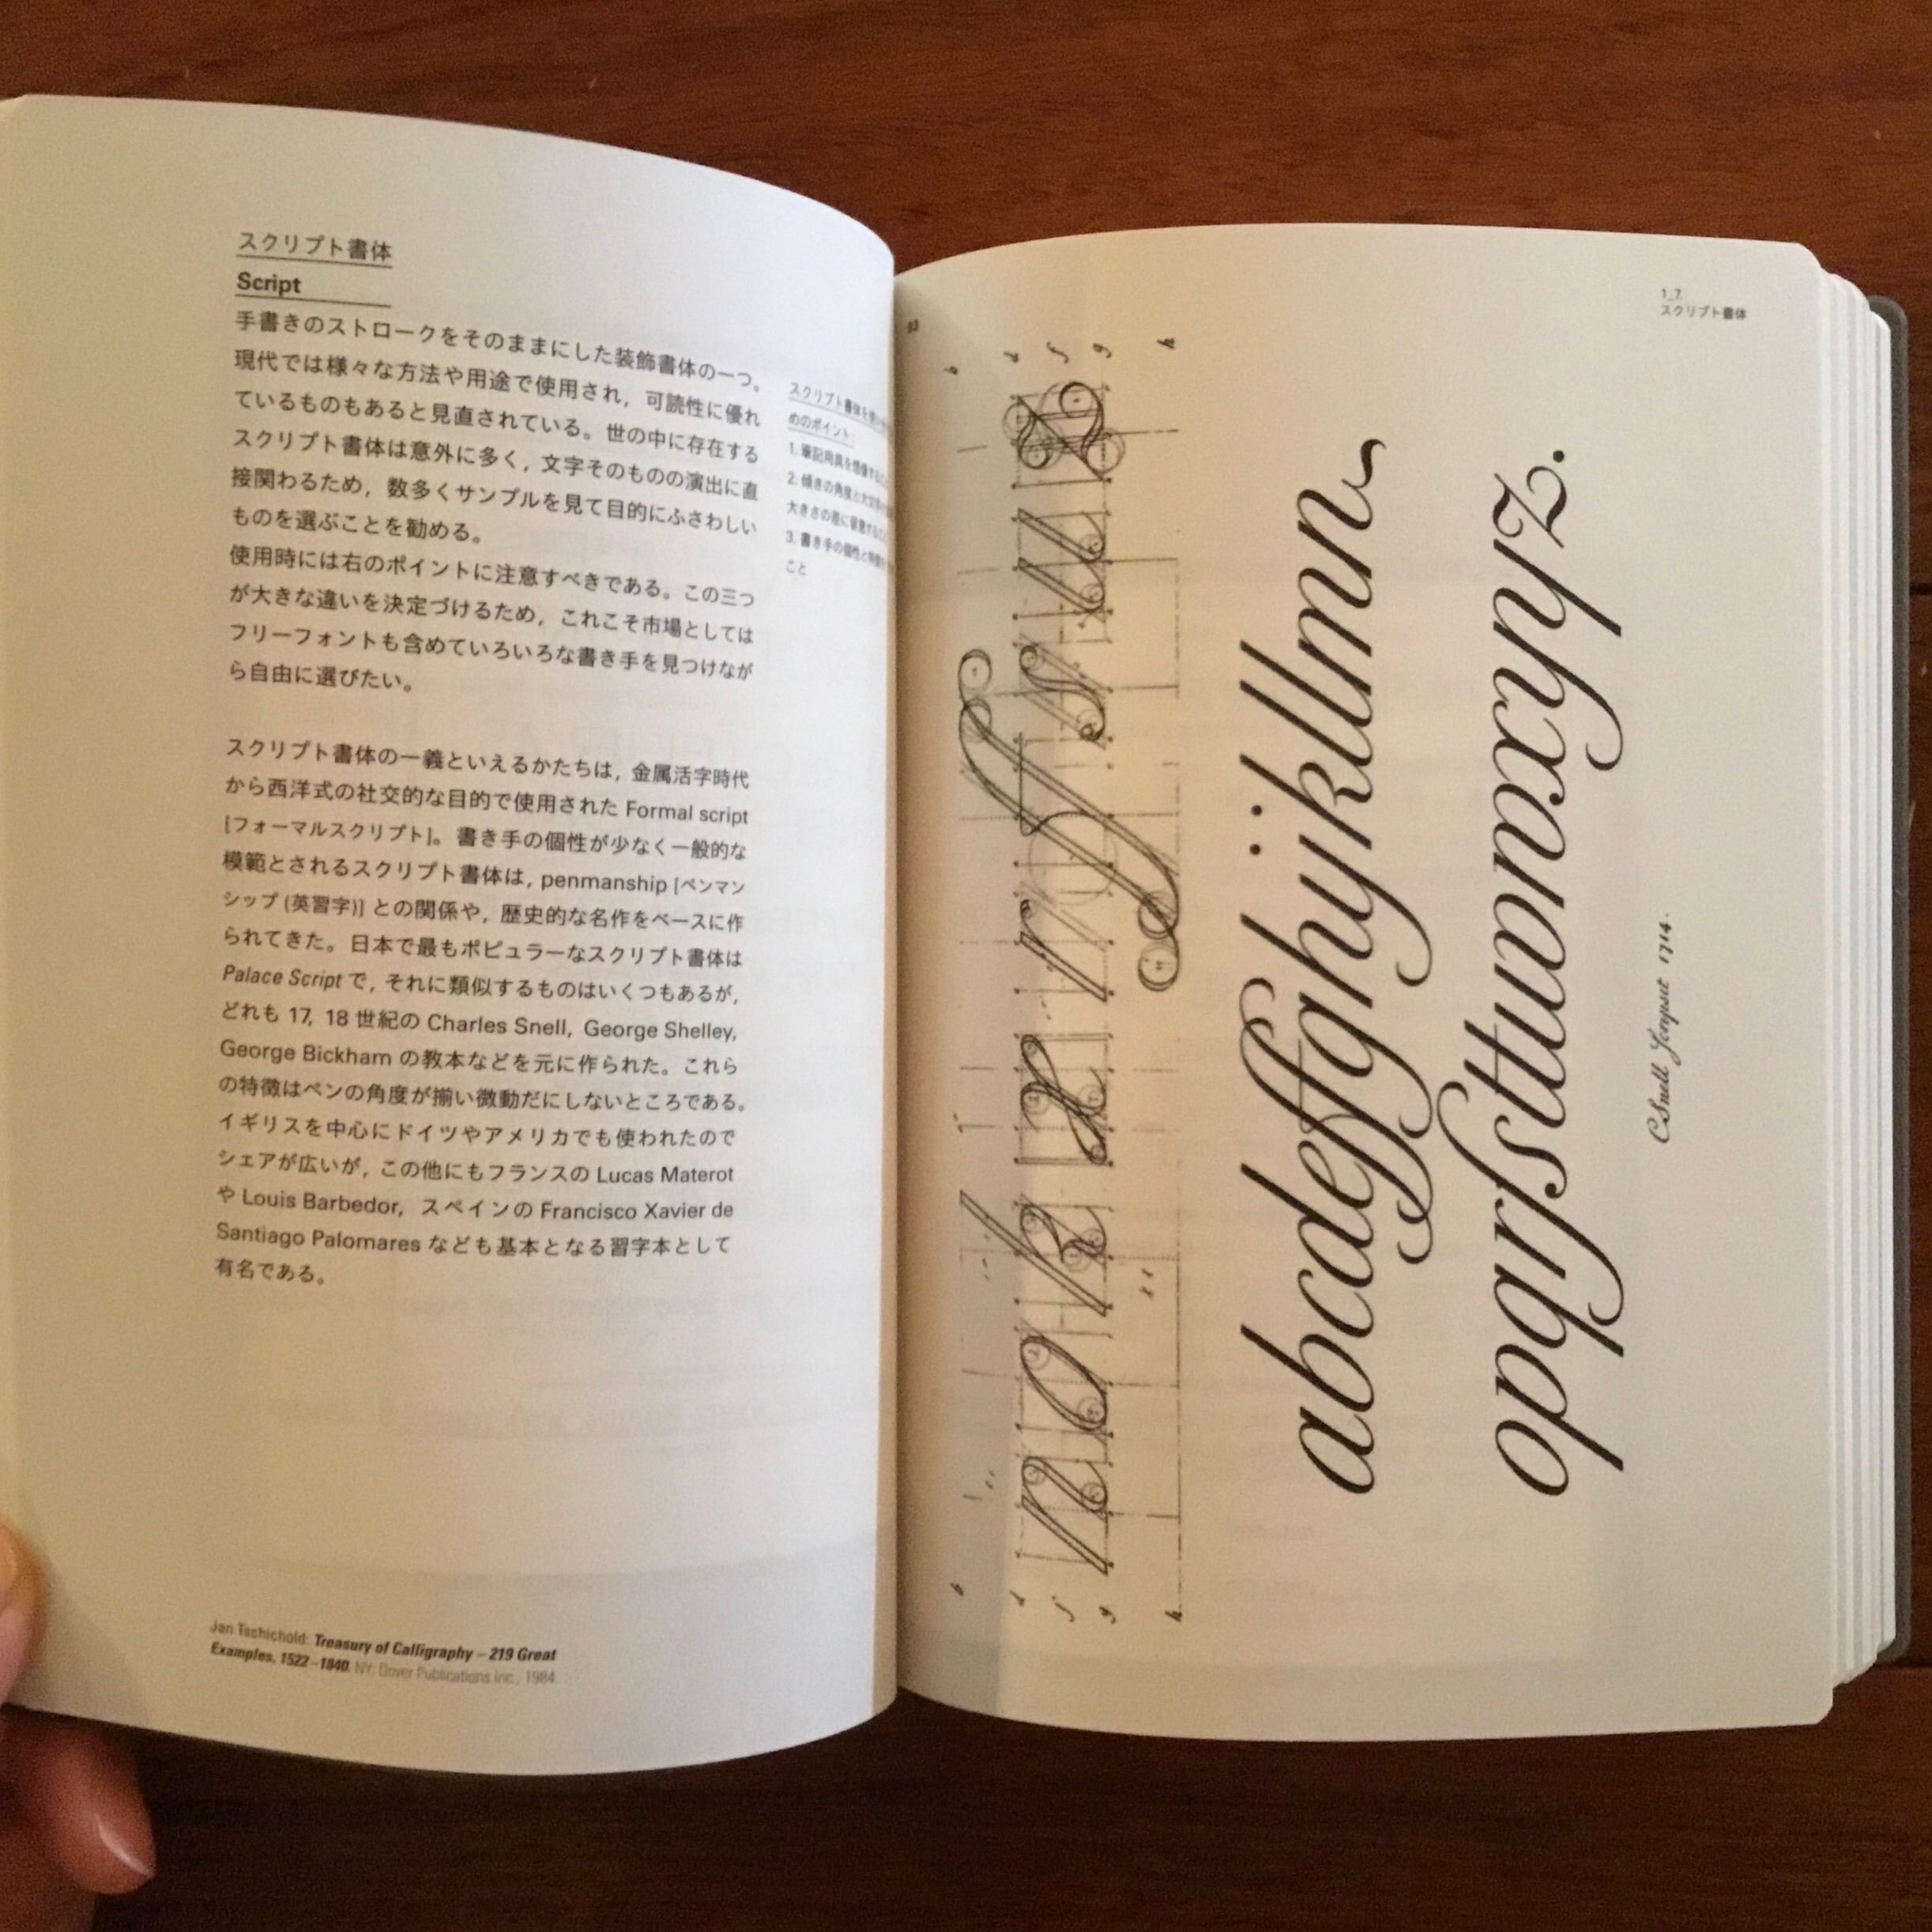 スクリプト書体
Script
手書きのストロークをそのままにした装飾書体の一つ。
現代では様々な方法や用途で使用され，可読性に優れ
ているものもあると見直されている。世の中に存在する
スクリプト書体は意外に多く，文字そのものの演出に直
接関わるため，数多くサンプルを見て目的にふさわしい
ものを選ぶことを勧める。
使用時には右のポイントに注意すべきである。この三つ
が大きな違いを決定づけるため，これこそ市場としては
フリーフォントも含めていろいろな書き手を見つけなが
ら自由に選びたい。
スクリプト書体の一義といえるかたちは，金属活字時代
から西洋式の社交的な目的で使用された Formal script
[フォーマルスクリプト]。書き手の個性が少なく一般的な
模範とされるスクリプト書体は，penmanship [ペンマン
シップ (英習字)] との関係や，歴史的な名作をベースに作
られてきた。日本で最もポピュラーなスクリプト書体は
Palace Script で，それに類似するものはいくつもあるが，
どれも 17, 18 世紀の Charles Snell, George Shelley,
George Bickham の教本などを元に作られた。これら
の特徴はペンの角度が揃い微動だにしないところである。
イギリスを中心にドイツやアメリカでも使われたので
シェアが広いが，この他にもフランスの Lucas Materot
や Louis Barbedor, スペインの Francisco Xavier de
Santiago Palomares なども基本となる習字本として
有名である。
スクリプト書体を
めのポイント：
1. 筆記用具を想像する
2. 傾きの角度と大文字
大きさの差に留意する
3. 書き手の個性と特徴
こと
Jan Tschichold: Treasury of Calligraphy – 219 Great
Examples, 1522–1840. NY: Dover Publications inc., 1984.
1_7
スクリプト書体
abcdefffghyjkllmn
opqrſsttuwnxxyyz.
CSnell 1714.